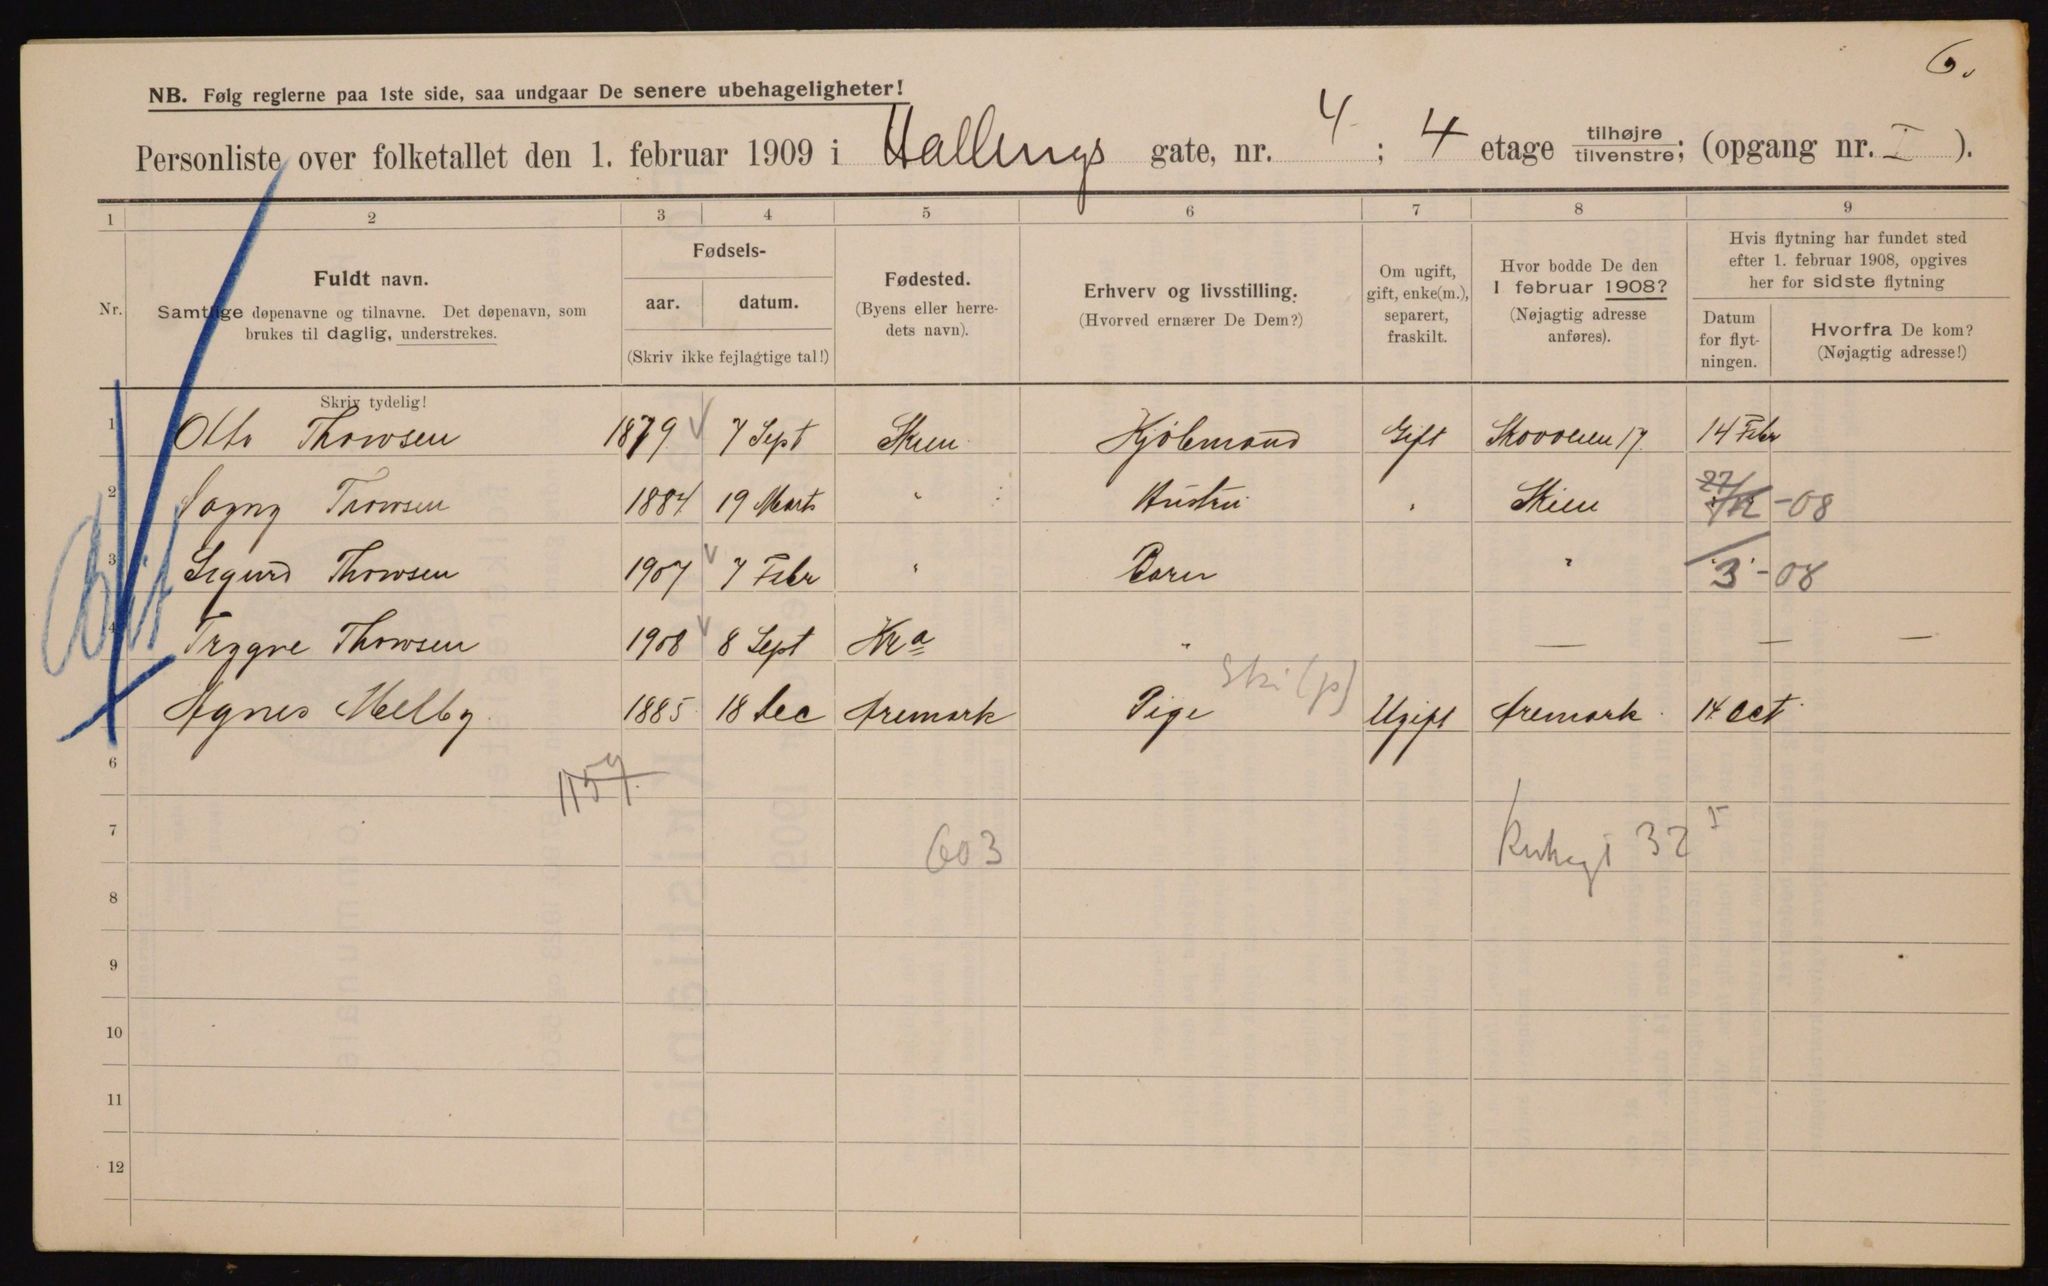 6.
NB. Følg reglerne paa 1ste side, saa undgaar De senere ubehageligheter!
Personliste over folketallet den 1. februar 1909 i Hallings gate, nr. 4 ; 4 etage tilhøjre tilvenstre; (opgang nr. I ).
1 2 3 4 5 6 7 8 9
Nr.
Fuldt navn.
Samtlige døpenavne og tilnavne. Det døpenavn, som
brukes til daglig, understrekes.
Skriv tydelig!
Fødsels-
aar. datum.
(Skriv ikke fejlagtige tal!)
Fødested.
(Byens eller herre-
dets navn).
Erhverv og livsstilling.
(Hvorved ernærer De Dem?)
Om ugift,
gift, enke(m.),
separert,
fraskilt.
Hvor bodde De den
1 februar 1908?
(Nøjagtig adresse
anføres).
Hvis flytning har fundet sted
efter 1. februar 1908, opgives
her for sidste flytning
Datum
for flyt-
ningen.
Hvorfra De kom?
(Nøjagtig adresse!)
1 Otto Thowsen 1879 7 Sept Skien Kjøbmand Gift Skovveien 17. 14 Febr
2 Thowsen 1884 19 Marts " Hustru " Skien -08
3 Sigurd Thowsen 1907 7 Febr " Barn " 3 -08
4 Trygve Thowsen 1908 8 Sept Kra " — — —
Ski (p)
Agnes Melby 1885 18 Dec Aremark Pige Ugift Aremark 14 Oct
6
1157
7 603 32 I
8
9
10
11
12